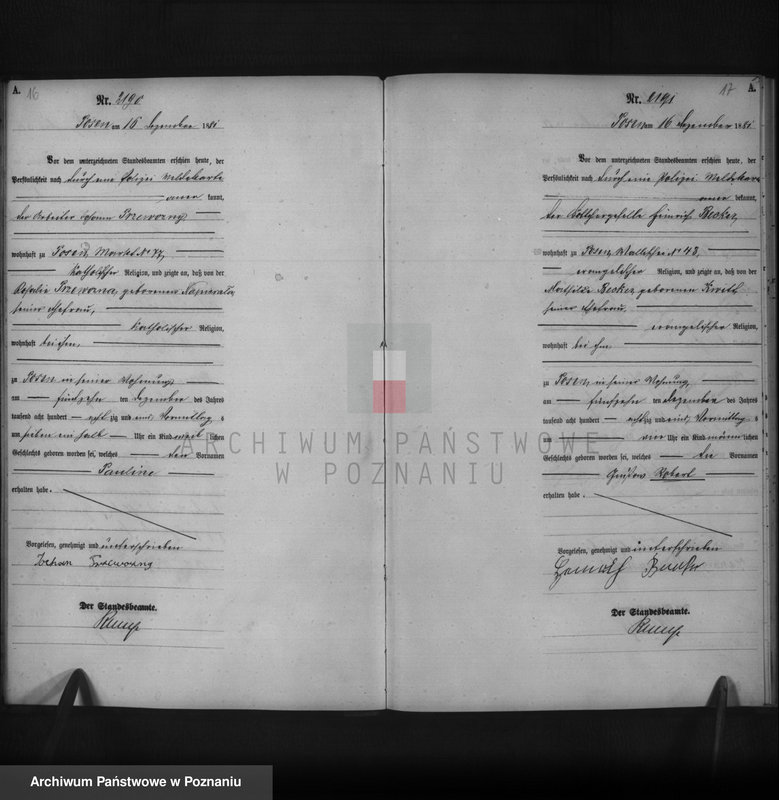 A. 16
Nr. 2190
Posen am 16 Dezember 1881
Vor dem unterzeichneten Standesbeamten erschien heute, der
Persönlichkeit nach durch eine Polizei Meldekarte
kannt,
der Arbeiter Johann
wohnhaft zu Posen, Markt No 77,
katholischer Religion, und zeigte an, daß von der
geborenen
seiner Ehefrau,
katholischer Religion,
wohnhaft bei ihm,
zu Posen in seiner Wohnung,
am fünfzehn ten Dezember des Jahres
tausend acht hundert acht zig und eins Vormittag s
um sieben ein halb Uhr ein Kind weib lichen
Geschlechts geboren worden sei, welches den Vornamen
Pauline
erhalten habe.
Vorgelesen, genehmigt und unterschrieben
Der Standesbeamte.
17 A.
Nr. 2191
Posen am 16 Dezember 1881
Vor dem unterzeichneten Standesbeamten erschien heute, der
Persönlichkeit nach durch eine Polizei Meldekarte
bekannt,
der Böttchergeselle Heinrich Becker,
wohnhaft zu Posen, No 43,
evangelischer Religion, und zeigte an, daß von der
Mathilde Becker, geborenen
seiner Ehefrau,
evangelischer Religion,
wohnhaft bei ihm
zu Posen in seiner Wohnung,
am fünfzehn ten Dezember des Jahres
tausend acht hundert achtzig und eins, Vormittag s
um vier Uhr ein Kind männ lichen
Geschlechts geboren worden sei, welches die Vornamen
Gustav Robert
erhalten habe.
Vorgelesen, genehmigt und unterschrieben
Heinrich Becker
Der Standesbeamte.
ARCHIWUM PAŃSTWOWE
W POZNANIU
Archiwum Państwowe w Poznaniu